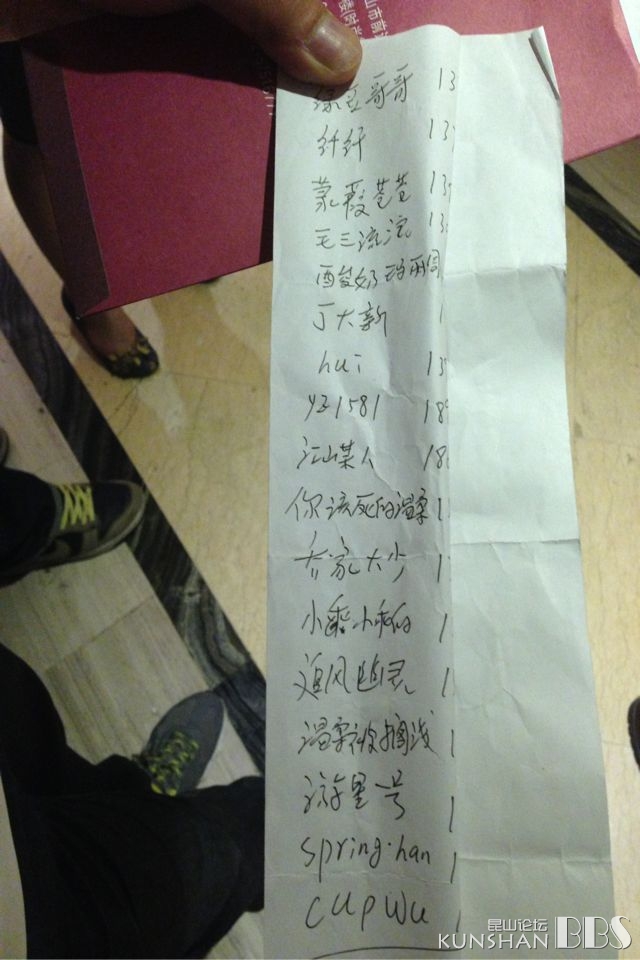 绿豆哥哥 13
纤纤 139
蒙霞苍苍 139
毛三流浣 13
酸奶玛丽
丁大新 1
hui 139
YZ1581 189
江山某人 186
你该死的温柔 1
乔家大少 1
小乖小乖的 1
追风幽灵 1
温柔被搁浅 1
游星号 1
spring·han 1
CUPWU 1
昆山论坛
KUNSHAN BBS